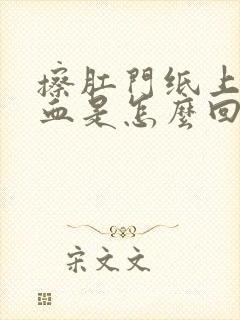 擦肛門纸上
血是怎麼回
宋文文